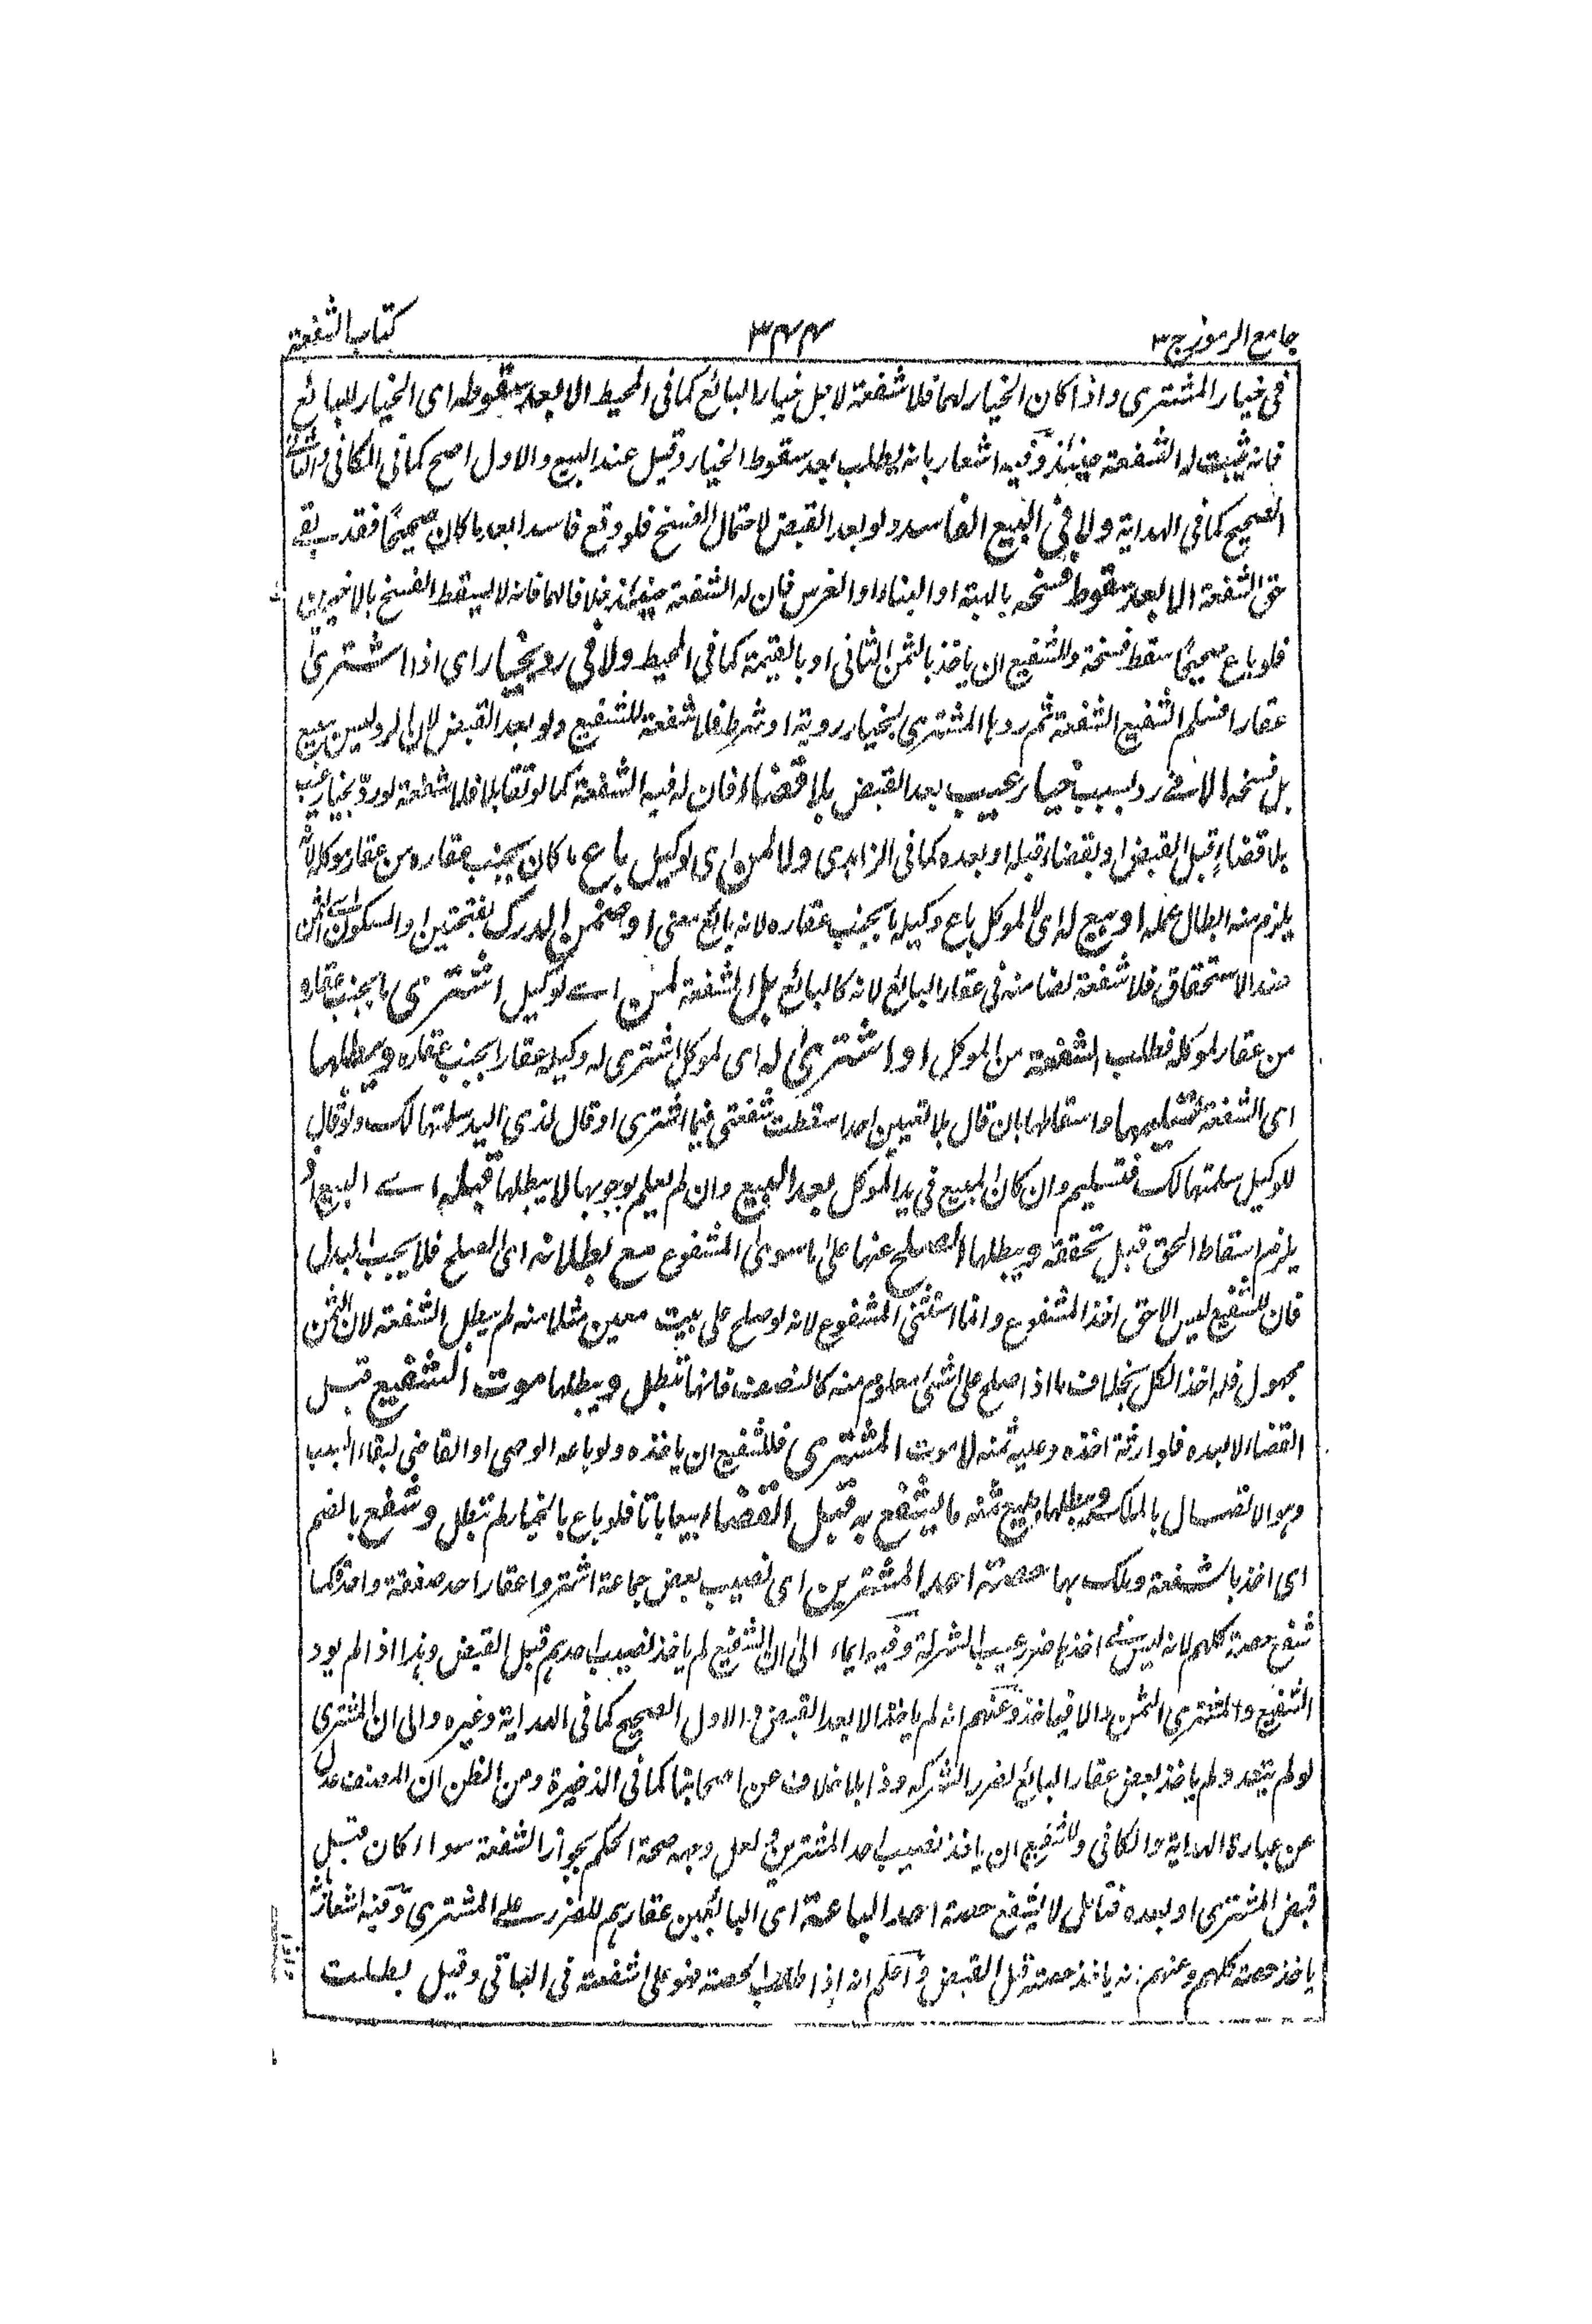 جامع الرموز ج ٣
٣٤٤
كتاب الشفعة
فى خيار المشترى واذا كان الخيار لهما فلا شفعة لاجل خيار البائع كما فى المحيط الا بعد سقوطه اى الخيار للبائع
فانه يثبت له الشفعة حينئذ وفيه اشعار بانه يطلب بعد سقوط الخيار وقيل عند البيع والاول اصح كما فى الكافى والثانى
الصحيح كما فى الهداية ولا فى البيع الفاسد ولو بعد القبض لاحتمال الفسخ فلو وقع فاسدا بعد ما كان صحيحًا فقد بقى
حق الشفعة الا بعد سقوط فسخه بالهبة او البناء او الغرس فان له الشفعة حينئذ خلافا لهما فانه لا يسقط الفسخ بالاخيرين
فلو باع صحيحًا سقط فسخه وللشفيع ان ياخذ بالثمن الثانى او بالقيمة كما فى المحيط ولا فى رد بخيار اى اذا اشترىٰ
عقارا فسلم الشفيع الشفعة ثم ردها المشترى بخيار روية او شرط فلا شفعة للشفيع ولو بعد القبض لان الرد ليس ببيع
بل فسخ الا فى رد بسبب خيار عيب بعد القبض بلا قضاء فان له فيه الشفعة كما لو تقايلا فلا شفعة لو رد بخيار عيب
بلا قضاء قبل القبض او بقضاء قبله او بعده كما فى الزاهدى ولا لمن اى لوكيل باع ما كان بجنب عقاره من عقار موكله لانه
يلزم منه ابطال عمله او بيع له اى لموكل باع وكيله ما بجنب عقاره لانه بائع معنى او ضمن الدرك بفتحتين او السكون اى الثمن
عند الاستحقاق فلا شفعة لضامنه فى عقار البائع لانه كالبائع بل الشفعة لمن اى لوكيل اشترى ما بجنب عقاره
من عقار لموكله فطلب الشفعة من الموكل او اشترىٰ له اى لموكل اشترى له وكيله عقارا بجنب عقاره ويبطلها
اى الشفعة تسليمها واسقاطها بان قال بلا تعيين احد اسقطت شفعتى فيما اشترى او قال لذى اليد سلمتها لك ولو قال
للوكيل سلمتها لك فتسليم وان كان المبيع فى يد الموكل بعد البيع وان لم يعلم بوجوبها لا يبطلها قبله اى البيع اذ
يلزم اسقاط الحق قبل تحققه ويبطلها الصلح عنها علىٰ ما سوىٰ المشفوع مع بطلانه اى الصلح فلا يجب البدل
فان للشفيع ليس الا حق اخذ المشفوع وانما استثنى المشفوع لانه لو صلح على بيت معين مثلا منه لم يبطل الشفعة لان الثمن
مجهول فله اخذ الكل بخلاف ما اذا صلح على شئ معلوم منه كالنصف فانها تبطل ويبطلها موت الشفيع قبل
القضاء لا بعده فلوارثه اخذه وعليه ثمنه لا موت المشترى فللشفيع ان ياخذه ولو باعه الوصى او القاضى لبقاء السبب
وهو الاتصال بالملك ويبطلها بيع ما يشفع به قبل القضاء بيعا باتا فلو باع بالخيار لم تبطل وشفع بالضم
اى اخذ بالشفعة وملك بها حصة احد المشترين اى نصيب بعض جماعة اشتروا عقارا احد صفقة واحدة كما
شفع حصة كلهم لانه ليس فى اخذها ضرر عيب الشركة وفيه ايماء الىٰ ان الشفيع لم ياخذ نصيب احدهم قبل القبض وهذا اذا لم يود
الشفيع والمشترى الثمن والا فياخذ وعنهم انه لم ياخذ الا بعد القبض والاول الصحيح كما فى الهداية وغيره والى ان المشترى
لو لم يتعدد لم ياخذ بعض عقار البائع لضرر الشركة وذا بلا خلاف عن اصحابنا كما فى الذخيرة ومن الظن ان المصنف عدل
عن عبارة الهداية والكافى وللشفيع ان ياخذ نصيب احد المشترين لعل وجه صحة الحكم بجواز الشفعة سواء كان قبل
قبض المشترى او بعده فتامل لا يشفع حصة احد الباعة اى البائعين عقارهم للضرر على المشترى وفيه اشعار بانه
ياخذ حصة كلهم وعنهم انه ياخذ حصته قبل القبض واعلم انه اذا طلب الحصة فهو على شفعته فى الباقى وقيل بطلت